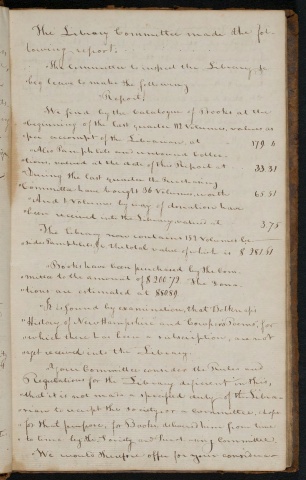 The Library Committee made the fol-
lowing report.
The Committee to inspect the Library, &c
beg leave to make the following
Report.
We find by the Catalogue of Books at the
beginning of the last quarter 112 Volumes, values as
per account of the Librarian, at 179
Also Pamphlets and
tions, valued at the date of this Report at 33.31
During the last quarter the Purchasing
Committee have bought 36 Volumes, worth 65.51
And Volumes by way of donations have
been received into the Library, valued at 3.75
The Library now contains 153 Volumes be-
sides Pamphlets, &c the total value of which is $ 281.51
Books have been purchased by the Com-
mittee to the amount of $ 200.71. The Dona-
tions are estimated at
It is found by examination, that Belknap's
History of New Hampshire and Cowper's Poems, for
which there has been a subscription, are not
yet received into the Library.
Your Committee consider the Rules and
Regulations for the Library deficient in this,
that it is not made a specified duty of the Libra-
rian to the Society, or a Committee,
for that purpose, for Books delivered from time
to time by the Society and Purchasing Committee.
We would therefore offer for your consideration